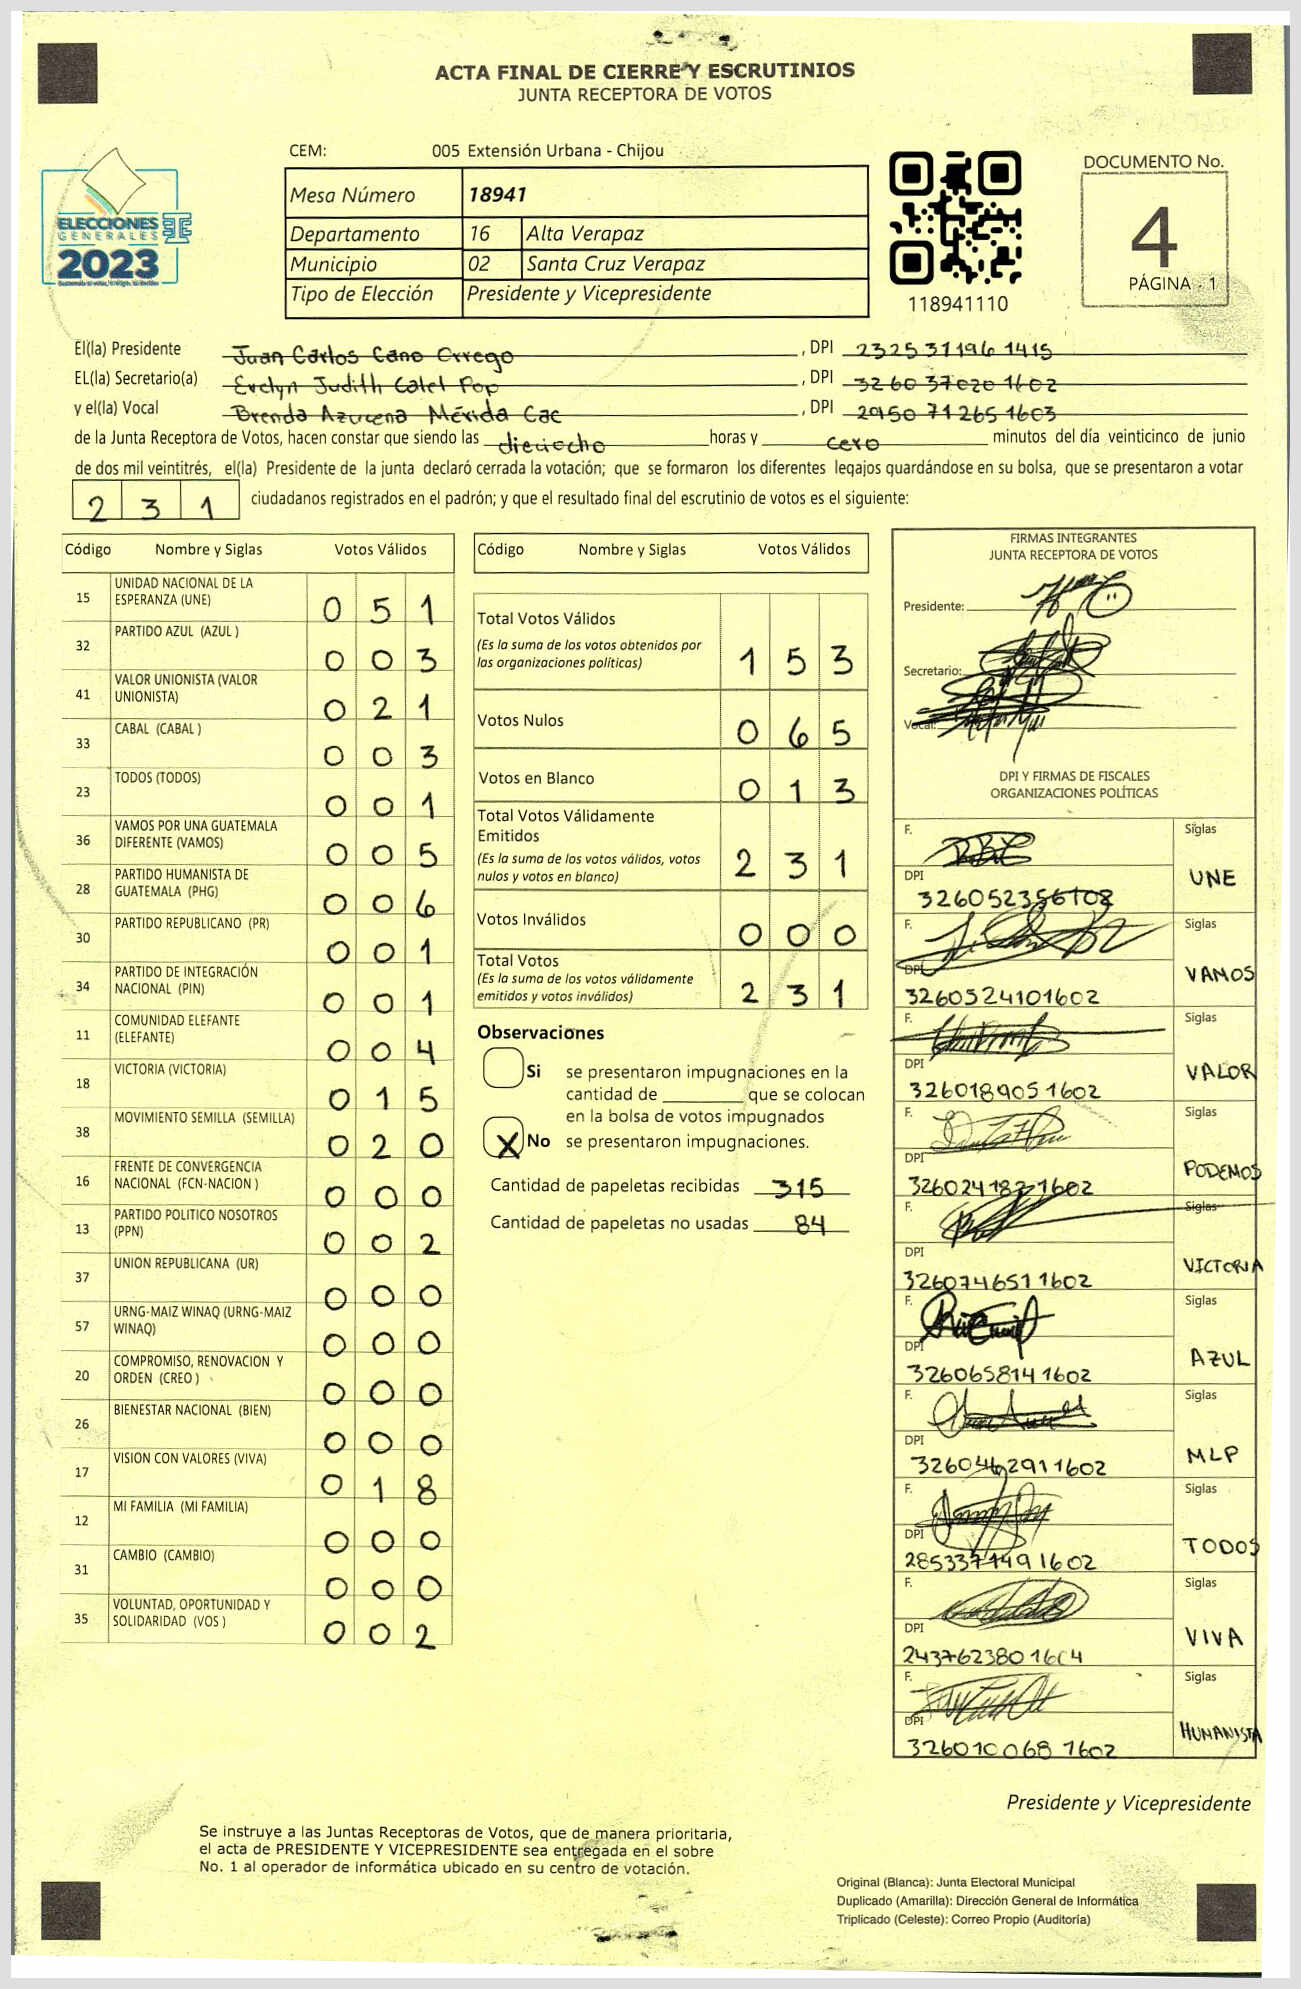 ACTA FINAL DE CIERRE Y ESCRUTINIOS
JUNTA RECEPTORA DE VOTOS
ELECCIONES
GENERALES
2023
CEM: 005 Extensión Urbana - Chijou
Mesa Número 18941
Departamento 16 Alta Verapaz
Municipio 02 Santa Cruz Verapaz
Tipo de Elección Presidente y Vicepresidente
118941110
DOCUMENTO No.
4
PÁGINA - 1
El(la) Presidente Juan Carlos Cano Orrego , DPI 2325 31196 1415
EL(la) Secretario(a) Evelyn Judith Calel Pop , DPI 3260 37020 1602
y el(la) Vocal Brenda Azucena Mérida Cac , DPI 2950 71265 1603
de la Junta Receptora de Votos, hacen constar que siendo las dieciocho horas y cero minutos del día veinticinco de junio
de dos mil veintitrés, el(la) Presidente de la junta declaró cerrada la votación; que se formaron los diferentes legajos guardándose en su bolsa, que se presentaron a votar
2 3 1 ciudadanos registrados en el padrón; y que el resultado final del escrutinio de votos es el siguiente:
Código Nombre y Siglas Votos Válidos
15 UNIDAD NACIONAL DE LA ESPERANZA (UNE) 0 5 1
32 PARTIDO AZUL (AZUL ) 0 0 3
41 VALOR UNIONISTA (VALOR UNIONISTA) 0 2 1
33 CABAL (CABAL ) 0 0 3
23 TODOS (TODOS) 0 0 1
36 VAMOS POR UNA GUATEMALA DIFERENTE (VAMOS) 0 0 5
28 PARTIDO HUMANISTA DE GUATEMALA (PHG) 0 0 6
30 PARTIDO REPUBLICANO (PR) 0 0 1
34 PARTIDO DE INTEGRACIÓN NACIONAL (PIN) 0 0 1
11 COMUNIDAD ELEFANTE (ELEFANTE) 0 0 4
18 VICTORIA (VICTORIA) 0 1 5
38 MOVIMIENTO SEMILLA (SEMILLA) 0 2 0
16 FRENTE DE CONVERGENCIA NACIONAL (FCN-NACION ) 0 0 0
13 PARTIDO POLITICO NOSOTROS (PPN) 0 0 2
37 UNION REPUBLICANA (UR) 0 0 0
57 URNG-MAIZ WINAQ (URNG-MAIZ WINAQ) 0 0 0
20 COMPROMISO, RENOVACION Y ORDEN (CREO ) 0 0 0
26 BIENESTAR NACIONAL (BIEN) 0 0 0
17 VISION CON VALORES (VIVA) 0 1 8
12 MI FAMILIA (MI FAMILIA) 0 0 0
31 CAMBIO (CAMBIO) 0 0 0
35 VOLUNTAD, OPORTUNIDAD Y SOLIDARIDAD (VOS ) 0 0 2
Código Nombre y Siglas Votos Válidos
Total Votos Válidos
(Es la suma de los votos obtenidos por
las organizaciones políticas) 1 5 3
Votos Nulos 0 6 5
Votos en Blanco 0 1 3
Total Votos Válidamente
Emitidos
(Es la suma de los votos válidos, votos
nulos y votos en blanco) 2 3 1
Votos Inválidos 0 0 0
Total Votos
(Es la suma de los votos válidamente
emitidos y votos inválidos) 2 3 1
Observaciones
Si se presentaron impugnaciones en la
cantidad de ________ que se colocan
en la bolsa de votos impugnados
X No se presentaron impugnaciones.
Cantidad de papeletas recibidas 315
Cantidad de papeletas no usadas 84
FIRMAS INTEGRANTES
JUNTA RECEPTORA DE VOTOS
Presidente:
Secretario:
Vocal:
DPI Y FIRMAS DE FISCALES
ORGANIZACIONES POLÍTICAS
F. Siglas
DPI UNE
F. Siglas
DPI 3260524101602 VAMOS
F. Siglas
DPI 3260189051602 VALOR
F. Siglas
DPI PODEMOS
F. Siglas
DPI 3260746511602 VICTORIA
F. Siglas
DPI 3260658141602 AZUL
F. Siglas
DPI 3260462911602 MLP
F. Siglas
DPI 2853371491602 TODOS
F. Siglas
DPI 2437623801604 VIVA
F. Siglas
DPI 3260100681602 HUMANISTA
Presidente y Vicepresidente
Se instruye a las Juntas Receptoras de Votos, que de manera prioritaria,
el acta de PRESIDENTE Y VICEPRESIDENTE sea entregada en el sobre
No. 1 al operador de informática ubicado en su centro de votación.
Original (Blanca): Junta Electoral Municipal
Duplicado (Amarilla): Dirección General de Informática
Triplicado (Celeste): Correo Propio (Auditoría)